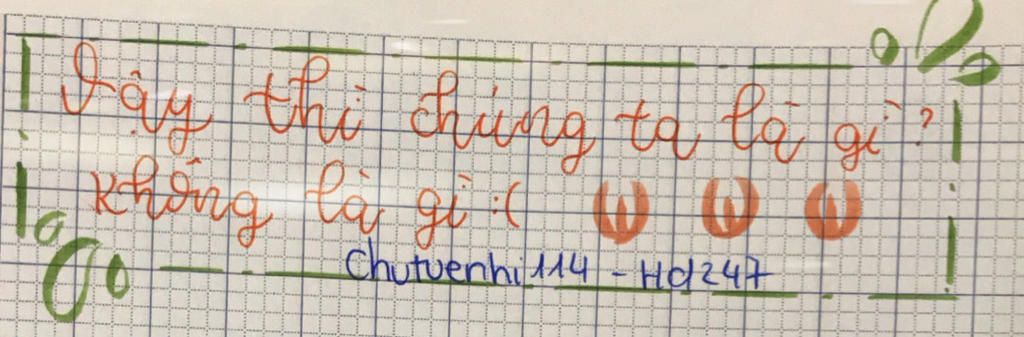 Vậy thì chúng ta là gì?
không là gì :(
Chutuenhi114 - Hd247